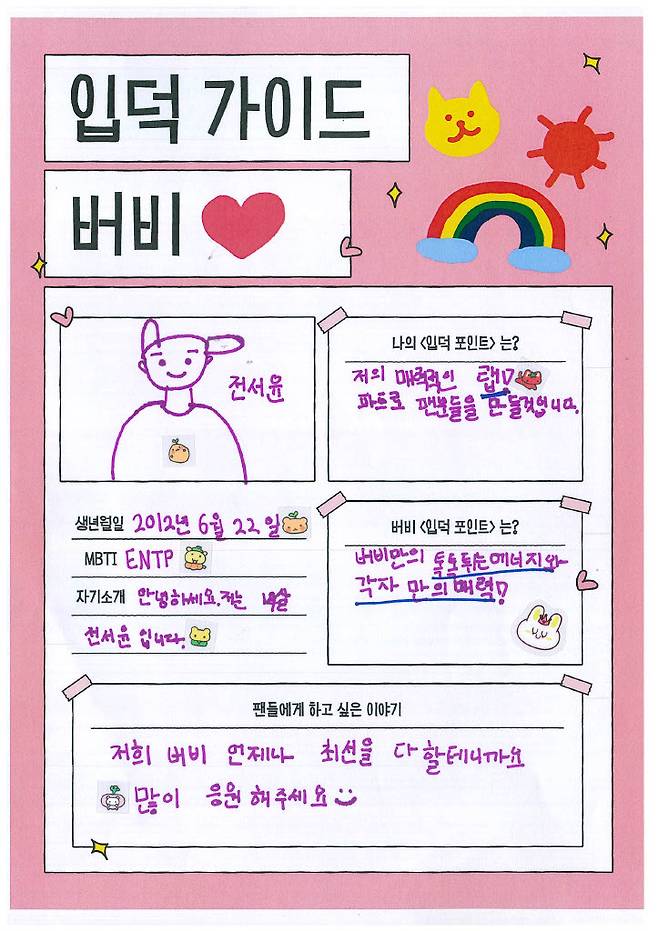 입덕 가이드
버비
전서윤
나의 <입덕 포인트> 는?
저의 매력적인 탭!
파트로 팬분들을 만들것입니다.
생년월일 2012년 6월 22일
MBTI ENTP
자기소개 안녕하세요. 저는 14살
전서윤 입니다.
버비 <입덕 포인트> 는?
버비만의 톡톡튀는에너지와
각자 만의 매력!
팬들에게 하고 싶은 이야기
저희 버비 언제나 최선을 다할테니까요
많이 응원해주세요